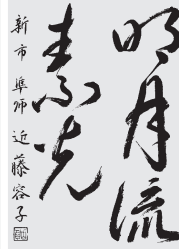 明月流
素光
新市 準師 近藤容子